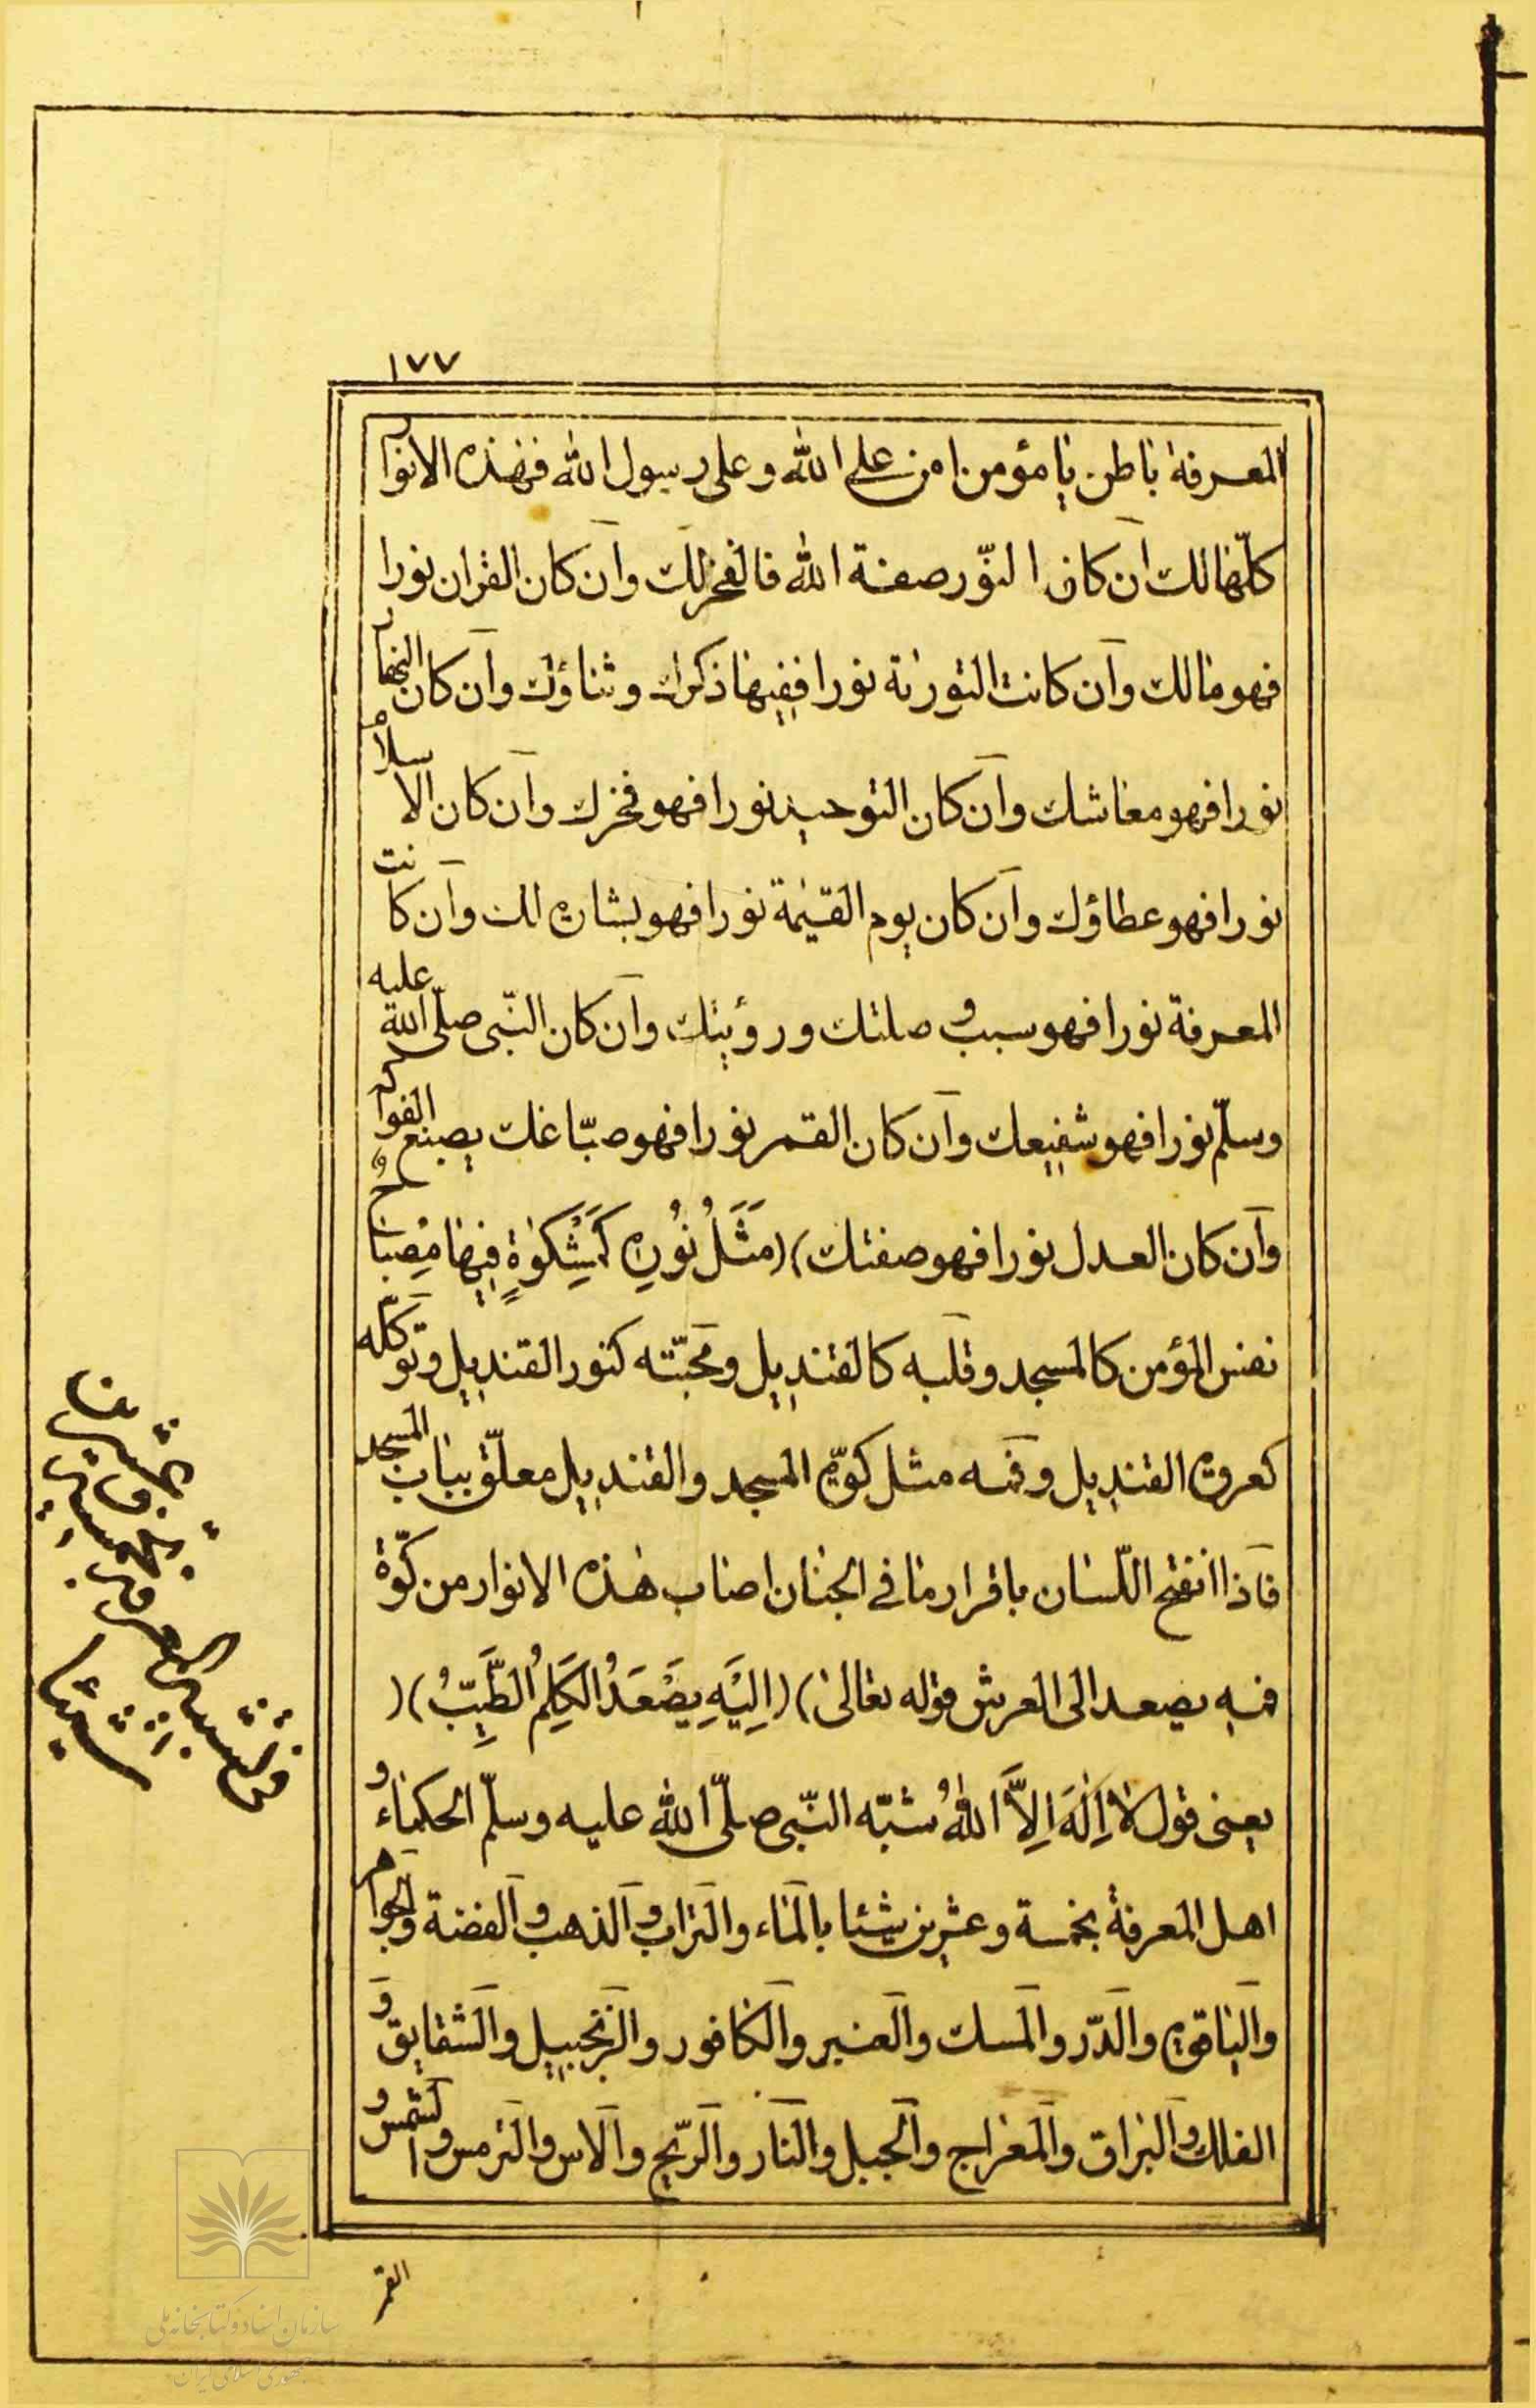 ١٧٧
المعرفة باطن يا مؤمن امن على الله وعلى رسول الله فهذه الانوار
كلّها لك ان كان النّور صفة الله فالفخر لك وان كان القران نورا
فهو مالك وان كانت التورىة نورا ففيها ذكرك وثناؤك وان كان النهار
نورا فهو معاشك وان كان التوحيد نورا فهو فخرك وان كان الاسلام
نورا فهو عطاؤك وان كان يوم القيٰمة نورا فهو بشارة لك وان كانت
المعرفة نورا فهو سبب وصلتك ورؤيتك وان كان النّبى صلّى الله عليه
وسلّم نورا فهو شفيعك وان كان القمر نورا فهو صبّاغك يصبغ الفواكه
وان كان العدل نورا فهو صفتك)(مَثَلُ نُورِهِ كَمِشْكٰوةٍ فِيهٰا مِصْبٰاحٌ
نفس المؤمن كالمسجد وقلبه كالقنديل ومحبّته كنور القنديل وتوكّله
كعروة القنديل وفمه مثل كوّة المسجد والقنديل معلّق بباب المسجد
فاذا انفتح اللّسان باقرار ما فى الجنان اصاب هذه الانوار من كوّة
فمه يصعد الى العرش قوله تعالى)(اِلَيْهِ يَصْعَدُ الكَلِمُ الطَّيِّبُ)(
يعنى قول لا اِلٰهَ اِلاَّ اللهُ شبّه النّبى صلّى الله عليه وسلّم الحكماء و
اهل المعرفة بخمسة وعشرين شيئا بالماء والتراب والذهب والفضة والجواهر
والياقوة والدّر والمسك والعنبر والكافور والزنجبيل والشقايق و
الفلك والبراق والمعراج والجبل والنار والرّيح والاس والترمس والشمس و
القمر
سازمان اسناد و کتابخانه ملی
جمهوری اسلامی ایران